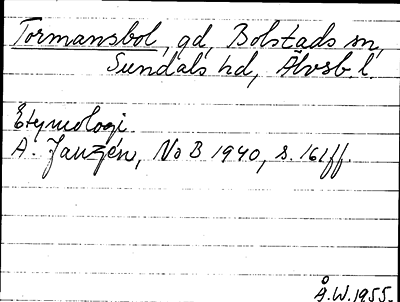 Tormansbol, gd, Bolstads sn,
Sundals hd, Älvsb. l.
Etymologi.
A. Janzén, NoB 1940, s. 161ff.
Å.W. 1955.